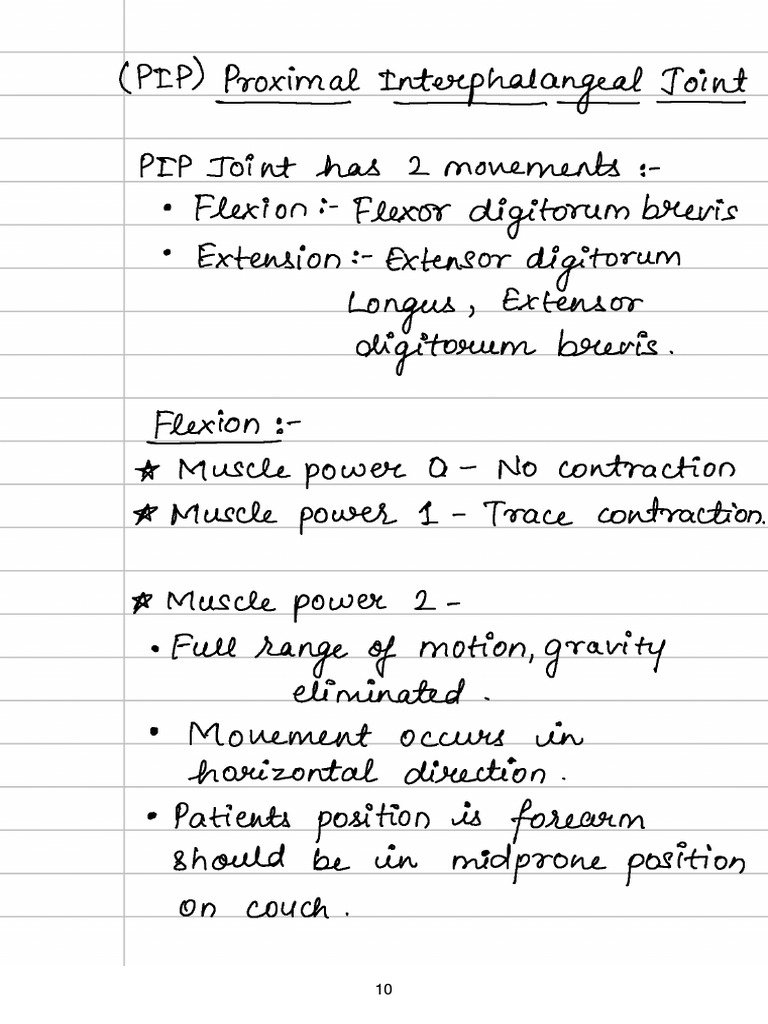 (PIP) Proximal Interphalangeal Joint
PIP Joint has 2 movements :-
• Flexion :- Flexor digitorum brevis
• Extension :- Extensor digitorum
Longus, Extensor
digitorum brevis.
Flexion :-
☆ Muscle power 0 - No contraction
☆ Muscle power 1 - Trace contraction.
☆ Muscle power 2 -
• Full range of motion, gravity
eliminated.
• Movement occurs in
horizontal direction.
• Patients position is forearm
should be in midprone position
on couch.
10